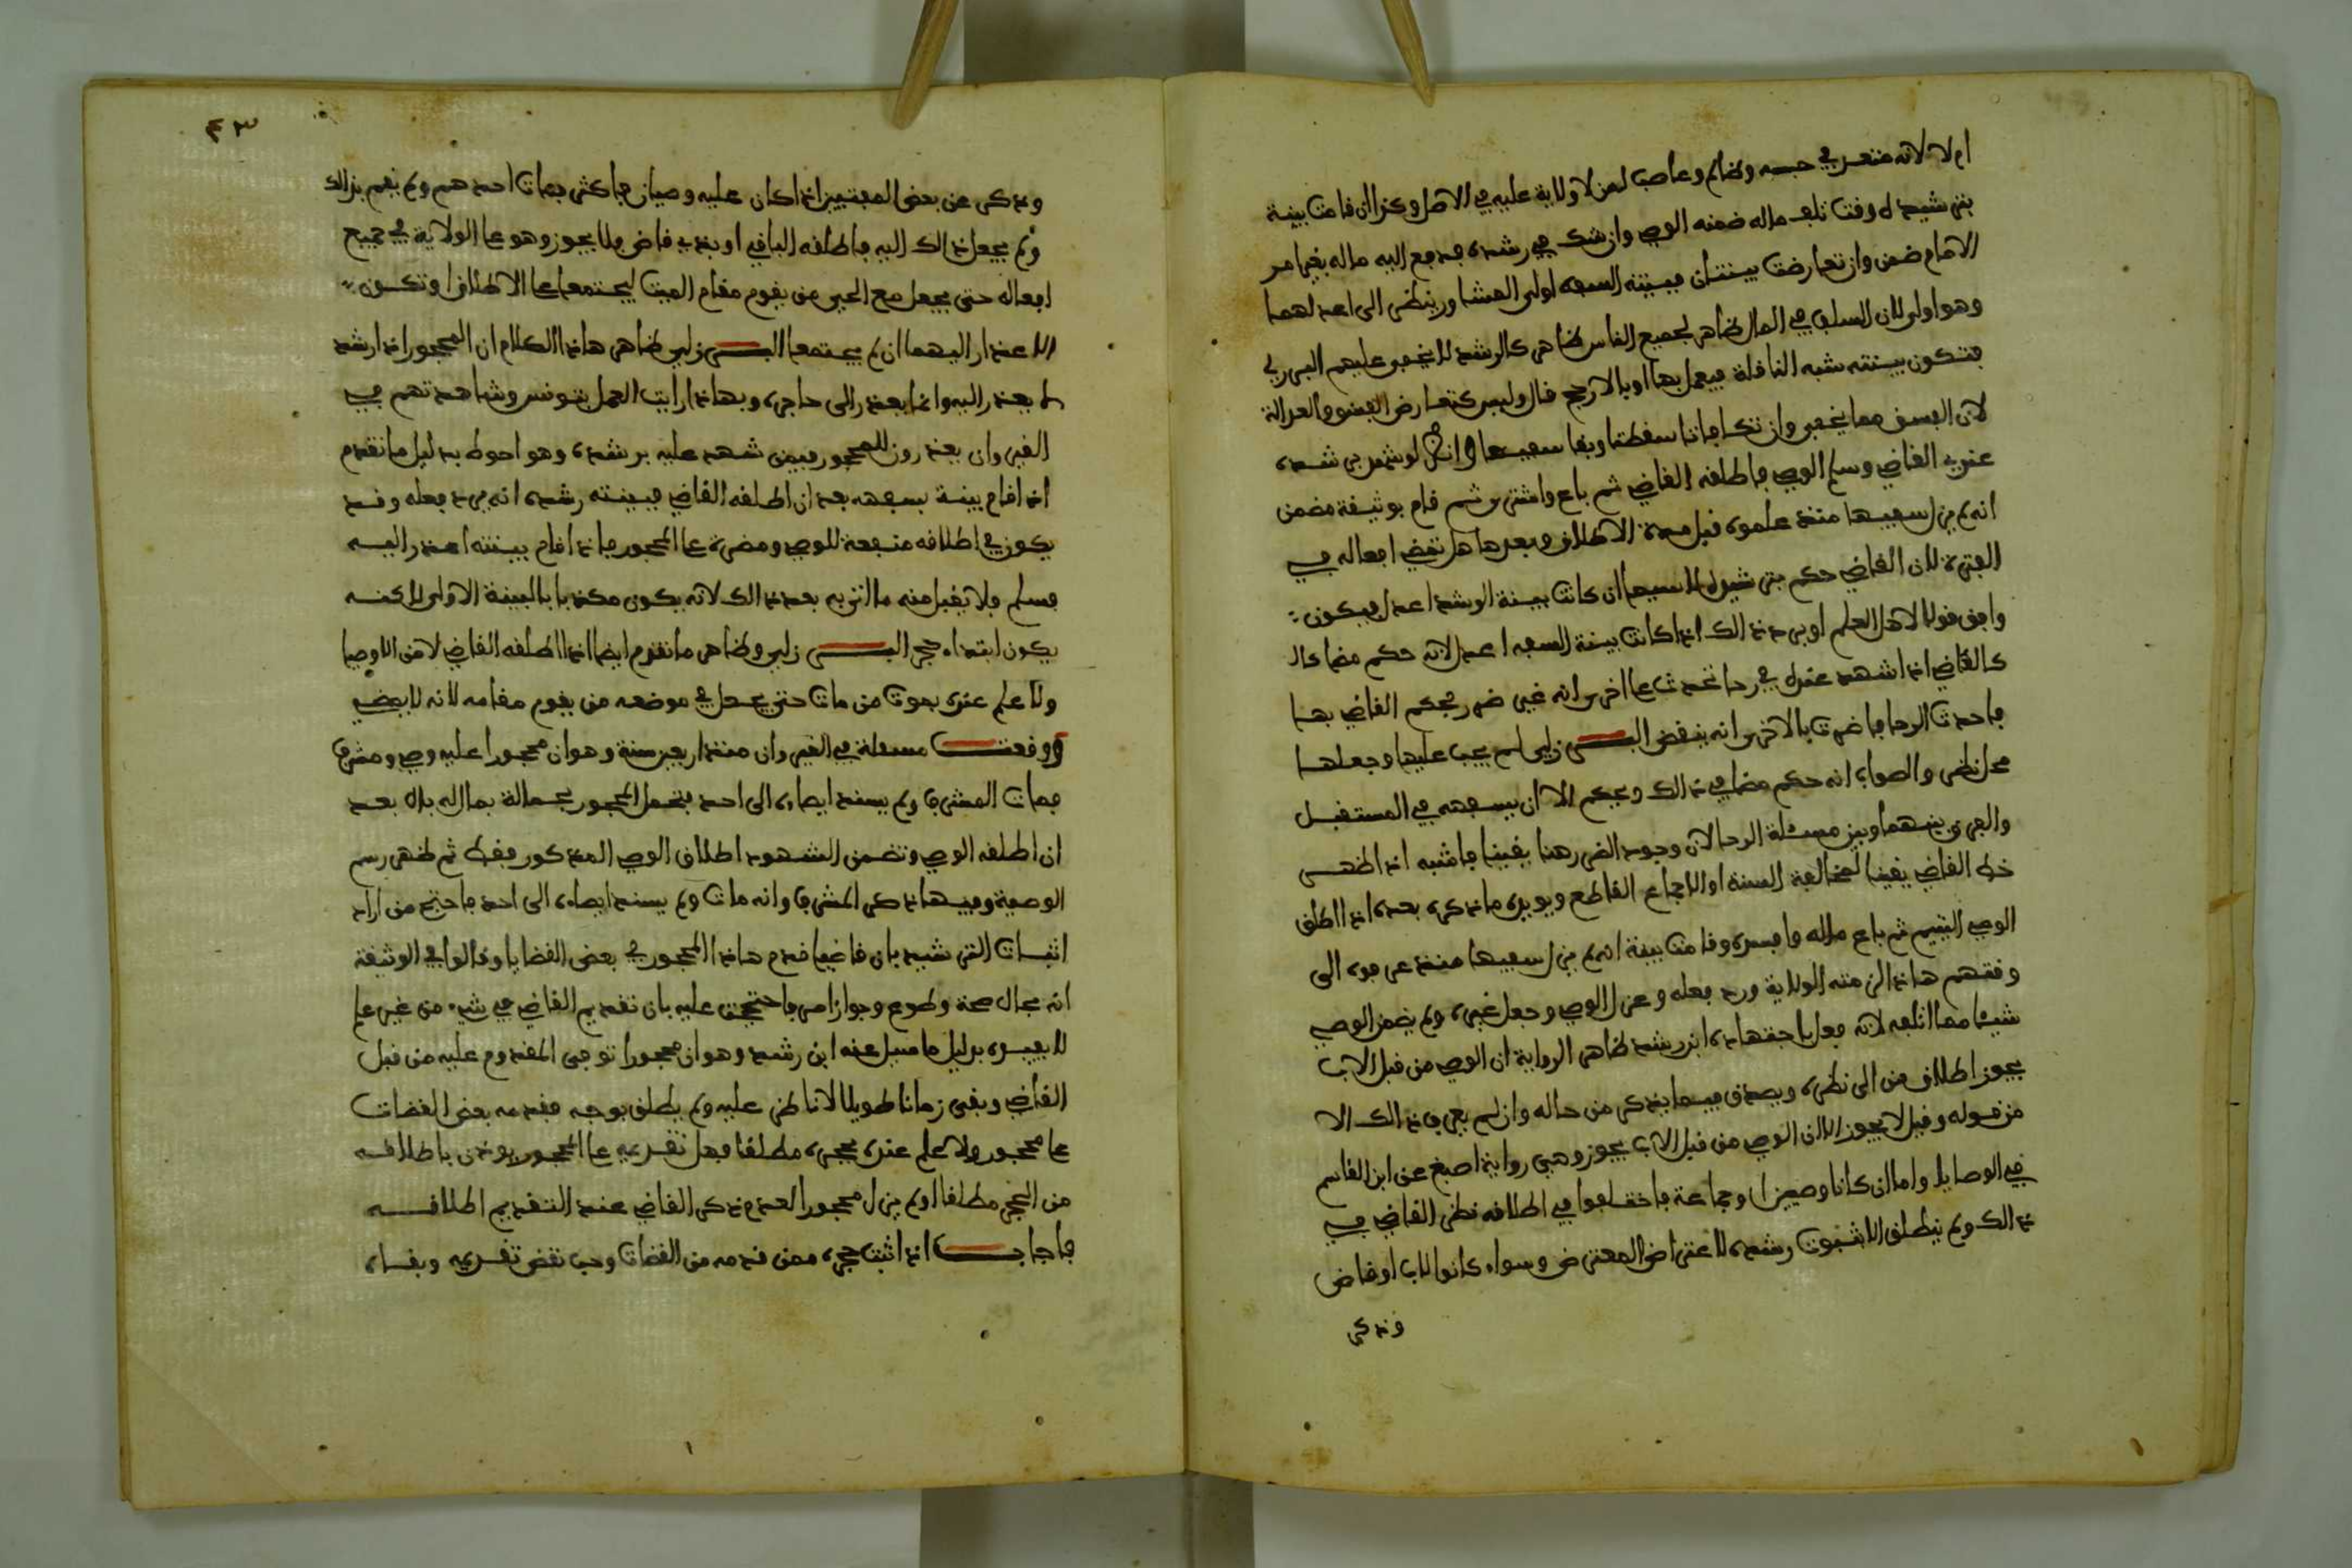 ام لا لانه متعد في حبسه وظالم وغاصب لمن لا ولاية عليه في الاصل وكذا ان قامت بينة
بترشيده وقت تلف ماله ضمنه الوصي وان شك في رشده فدفع اليه ماله بغير امر
الامام ضمن وان تعارضت بينتان فبينة السفه اولى المشاور ينظر الى اعدلهما
وهو اولى لان السلف في المال ظاهر لجميع الناس ظاهر كالرشد لا يخفى عليهم البرزلي
فتكون بينته شبه الناقلة فيعمل بها او بالارجح قال وليس كتعارض الفسق والعدالة
لان الفسق مما يخفى وان تكافاتا سقطتا وبقا سفيها وانظر لو شهد برشده
عند القاضي وسلم الوصي فاطلقه القاضي ثم باع واشترى ثم قام بوثيقة مضمن
انه لم يزل سفيها منذ علموه قبل مدة الاطلاق وبعدها هل تنقض افعاله في
الفترة لان القاضي حكم بترشيده لا سيما ان كانت بينة الرشد اعدل فيكون
وافق قولا لاهل العلم او يرد ذالك اذا كانت بينة السفه اعدل لانه حكم مضا كالـ
كالقاضي اذا شهد عنده في رحا تحدث على اخرى انه غير ضرر فحكم القاضي بها
فاحدث الرحا فاضرت بالاخرى انه ينقض البــرزلي لم يجب عليها وجعلها
محل نظر والصواب انه حكم مضا في ذالك ويحكم الان بسفهه في المستقبل
والفرق بينهما وبين مسئلة الرحا لان وجود الضرر هنا يقينا فاشبه اذا ظهر
خطا القاضي يقينا لمخالفة السنة او الاجماع القاطع ويويده ما ذكره بعده اذا اطلق
الوصي اليتيم ثم باع ماله وافسده وقامت بينة انه لم يزل سفيها منذ عرفوه الى
وقتهم هاذا لزمته الولاية ورد فعله وعزل الوصي وجعل غيره ولم يضمن الوصي
شيئا مما اتلفه لانه فعل باجتهاده ابن رشد ظاهر الرواية ان الوصي من قبل الاب
يجوز اطلاقه من الى نظره ويصدق فيما يذكر من حاله وان لم يعرف ذالك الا
من قوله وقيل لا يجوز الا ان الوصي من قبل الاب يجوز وهي رواية اصبغ عن ابن القاسم
في الوصايا واما ان كانا وصيين او جماعة فاختلفوا في اطلاقه نظر القاضي في
ذالك ولم ينطلق الا بثبوت رشده لاعتراض المعترض وسواء كانوا لاب او قاض
وذكر
٤٣
وذكر عن بعض المفتيين اذا كان عليه وصيان فاكثر فمات احدهم ولم يقم بذالك
ولم يجعل ذالك اليه فاطلقه الباقي او بقدم قاض فلا يجوز وهو على الولاية في جميع
افعاله حتى يجعل مع الحي من يقوم مقام الميت ليجتمعا على الاطلاق او تكون
الاعذار اليهما ان لم يجتمعا البــرزلي ظاهر هاذا الكلام ان المحجور اذا رشد
لا يعذر اليه وانما يعذر الى حاجره وبهاذا رايت العمل بتونس وشاهدتهم في
القيروان يعذرون للمحجور فيمن شهد عليه برشده وهو احوط بدليل ما تقدم
اذا اقام بينة بسفهه بعد ان اطلقه القاضي فبينة رشده انه يرد فعله وقد
يكون في اطلاقه منفعة للوصي ومضرة على المحجور فاذا اقام بينته اعذر اليه
فسلم فلا يقبل منه ما اتى به بعد ذالك لانه يكون مكذبا بالبينة الاولى لاكنه
يكون ابتداء حجر البــرزلي وظاهر ما تقدم ايضا اذا اطلقه القاضي لا من الاوصيا
ولا علم عنده بموت من مات حتى يجعل في موضعه من يقوم مقامه لانه لا يمضي
ووقعــت مسئلة في القيروان منذ اربعين سنة وهو ان محجورا عليه وصي ومشرف
فمات المشرف ولم يسند ايصاءه الى احد فتحمل المحجور بحمالة بمال له بال بعد
ان اطلقه الوصي وتضمن الشهود اطلاق الوصي المذكور فقط ثم ظهر رسم
الوصية وفيها ذكر المشرف وانه مات ولم يسند ايصاءه الى احد فاحتج من اراد
اثبات الترشيد بان قاضيا قدم هاذا المحجور في بعض القضايا وقالوا في الوثيقة
انه بحال صحة وطوع وجواز امر فاحتججت عليه بان تقديم القاضي في شيء من غير علم
لا يفيده بدليل ما سيل عنه ابن رشد وهو ان محجورا توفي المقدم عليه من قبل
القاضي وبقي زمانا طويلا لا ناظر عليه ولم يطلق بوجه فقدمه بعض القضات
على محجور ولا علم عنده بحجره مطلقا فهل تقديمه على المحجور يوذن باطلاقه
من الحجر مطلقا او لم يزل محجورا لعدم ذكر القاضي عند التقديم اطلاقه
فاجابــــ اذا ثبت حجره ممن قدمه من القضات وجب نقض تقديمه وبقاءه